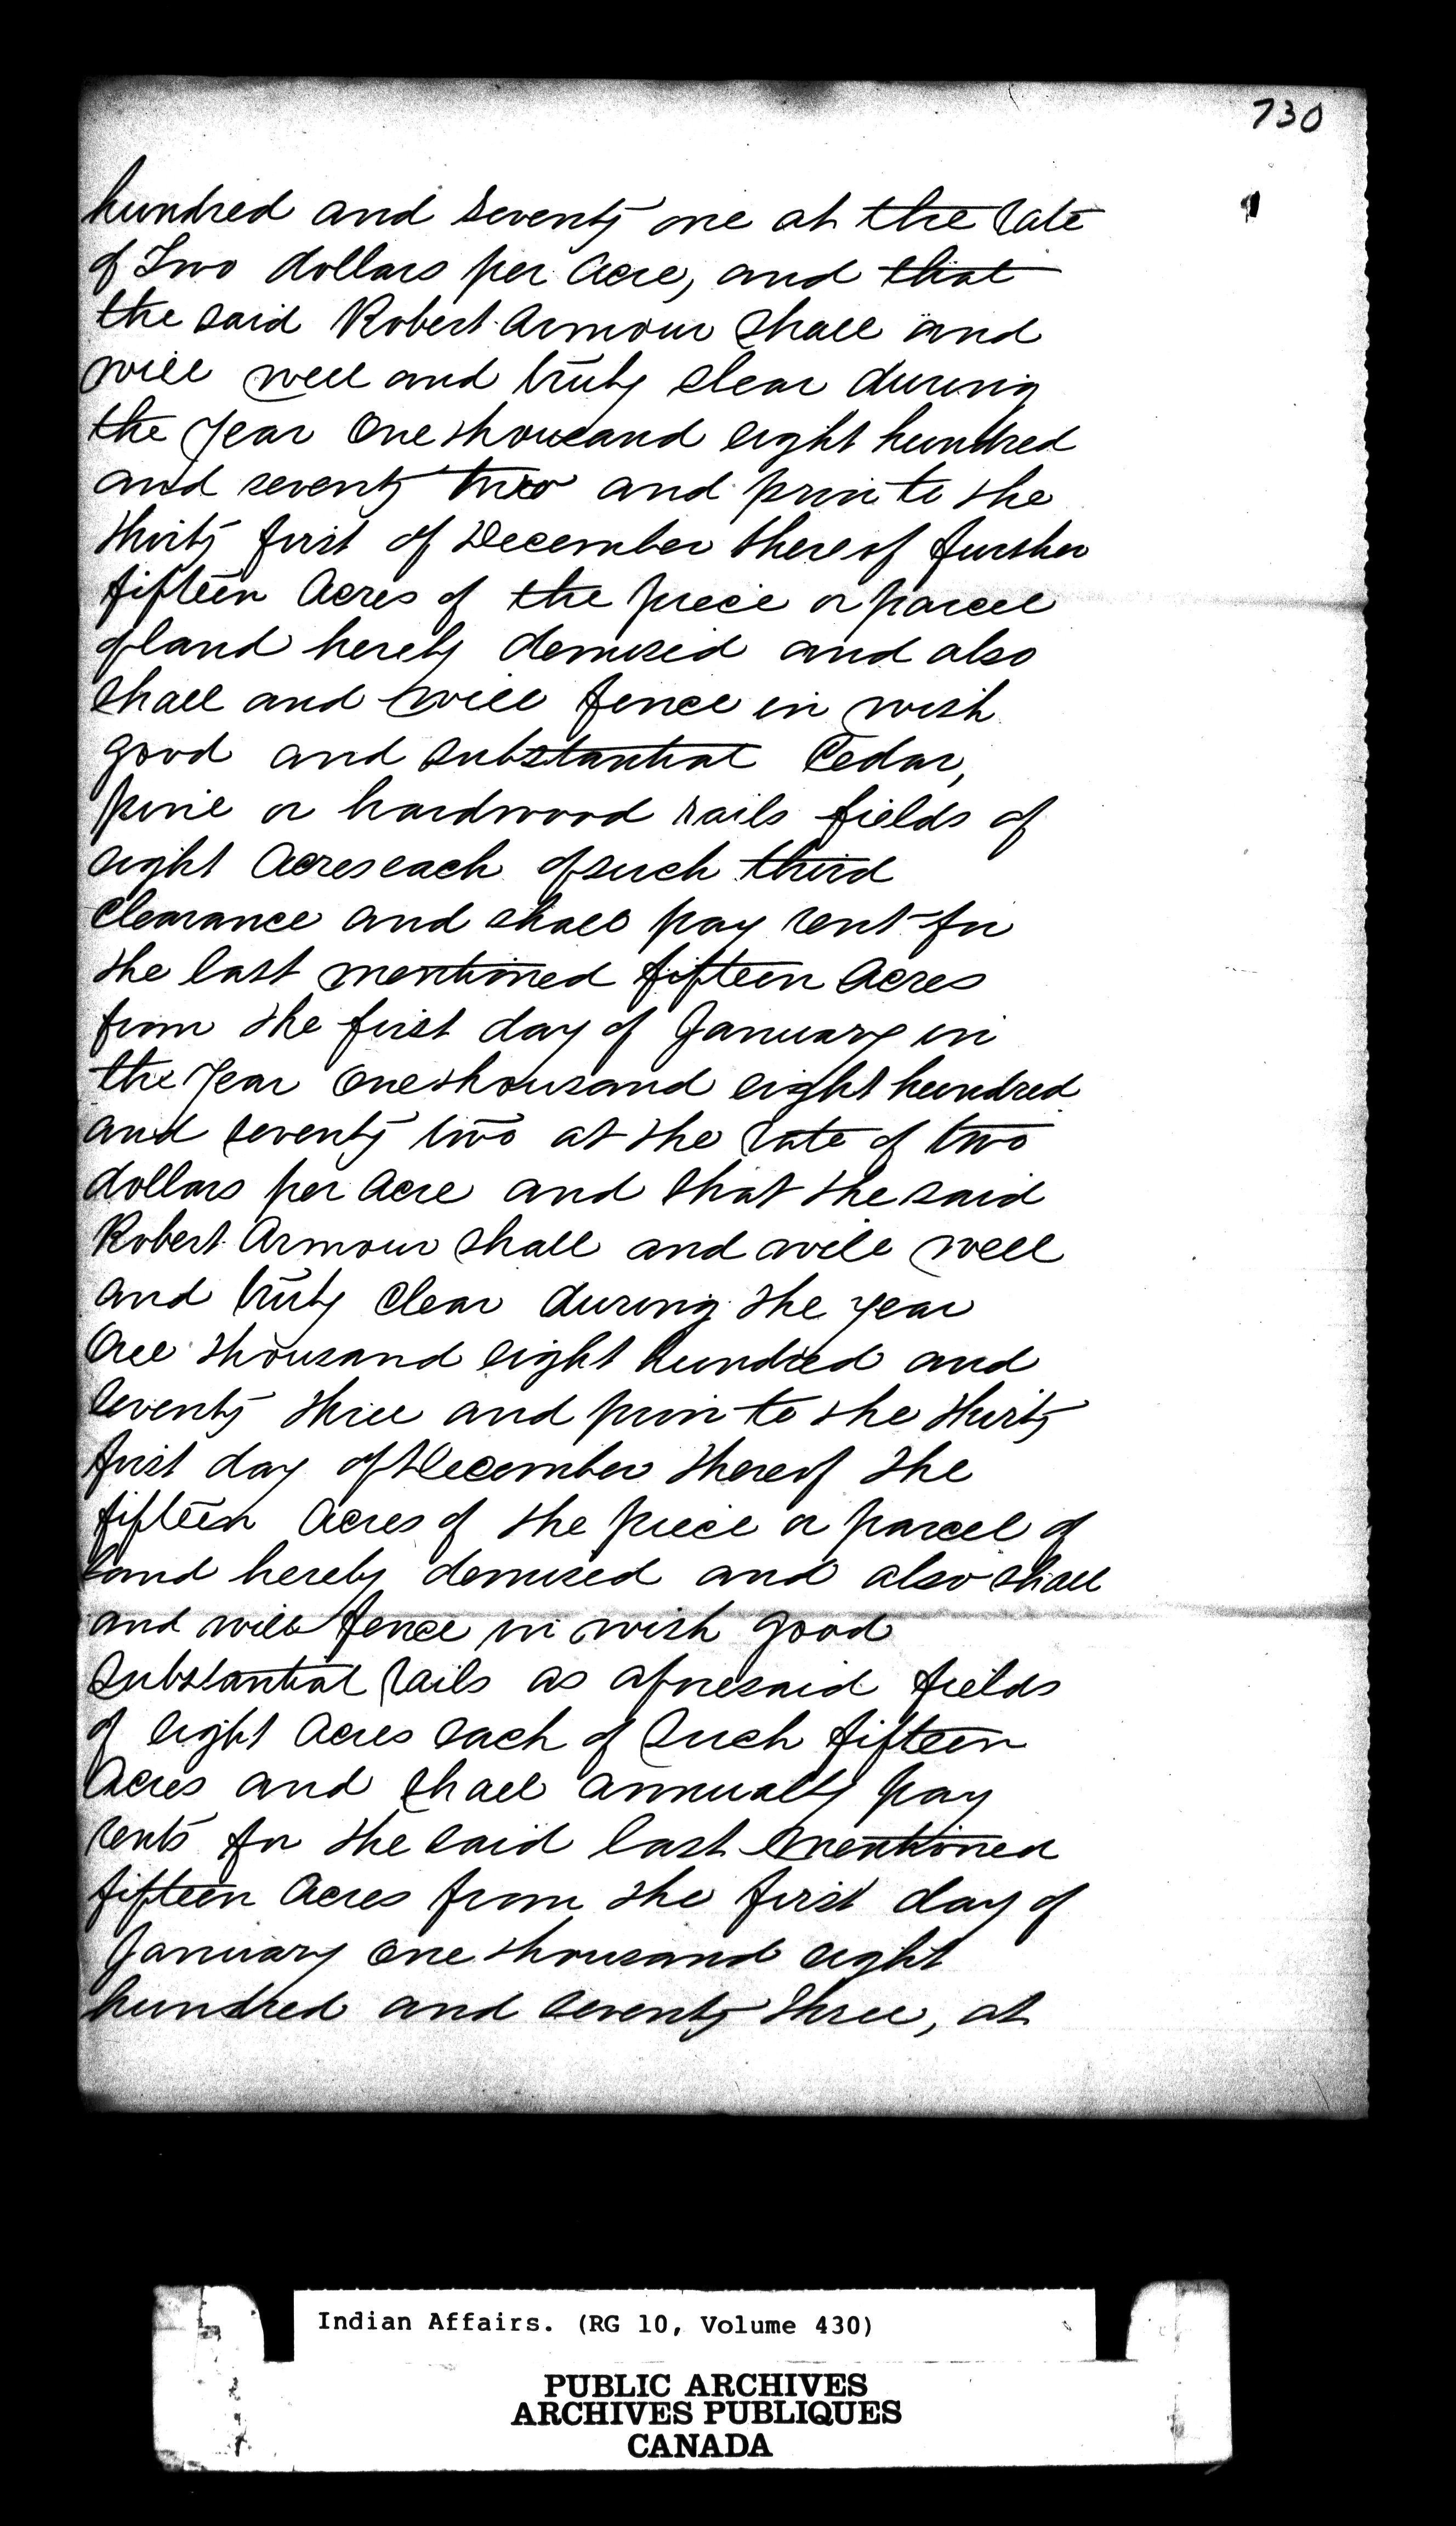 730
hundred and seventy one at the rate
of Two dollars per Acre, and that
the said Robert Armour shall and
will well and truly clear during
the Year One thousand eight hundred
and seventy two and prior to the
thirty first of December thereof further
fifteen Acres of the piece or parcel
of land hereby demised and also
shall and will fence in with
good and substantial Cedar,
pine or hardwood rails fields of
eight Acres each of such third
clearance and shall pay rent for
the last mentioned fifteen Acres
from the first day of January in
the Year One thousand eight hundred
and seventy two at the rate of two
dollars per Acre and that the said
Robert Armour shall and will well
and truly clear during the year
One thousand eight hundred and
seventy three and prior to the thirty
first day of December thereof the
fifteen Acres of the piece or parcel of
land hereby demised and also shall
and will fence in with good
substantial rails as aforesaid fields
of eight Acres each of such fifteen
Acres and shall annually pay
rents for the said last mentioned
fifteen Acres from the first day of
January One thousand eight
hundred and seventy three, at
Indian Affairs. (RG 10, Volume 430)
PUBLIC ARCHIVES
ARCHIVES PUBLIQUES
CANADA